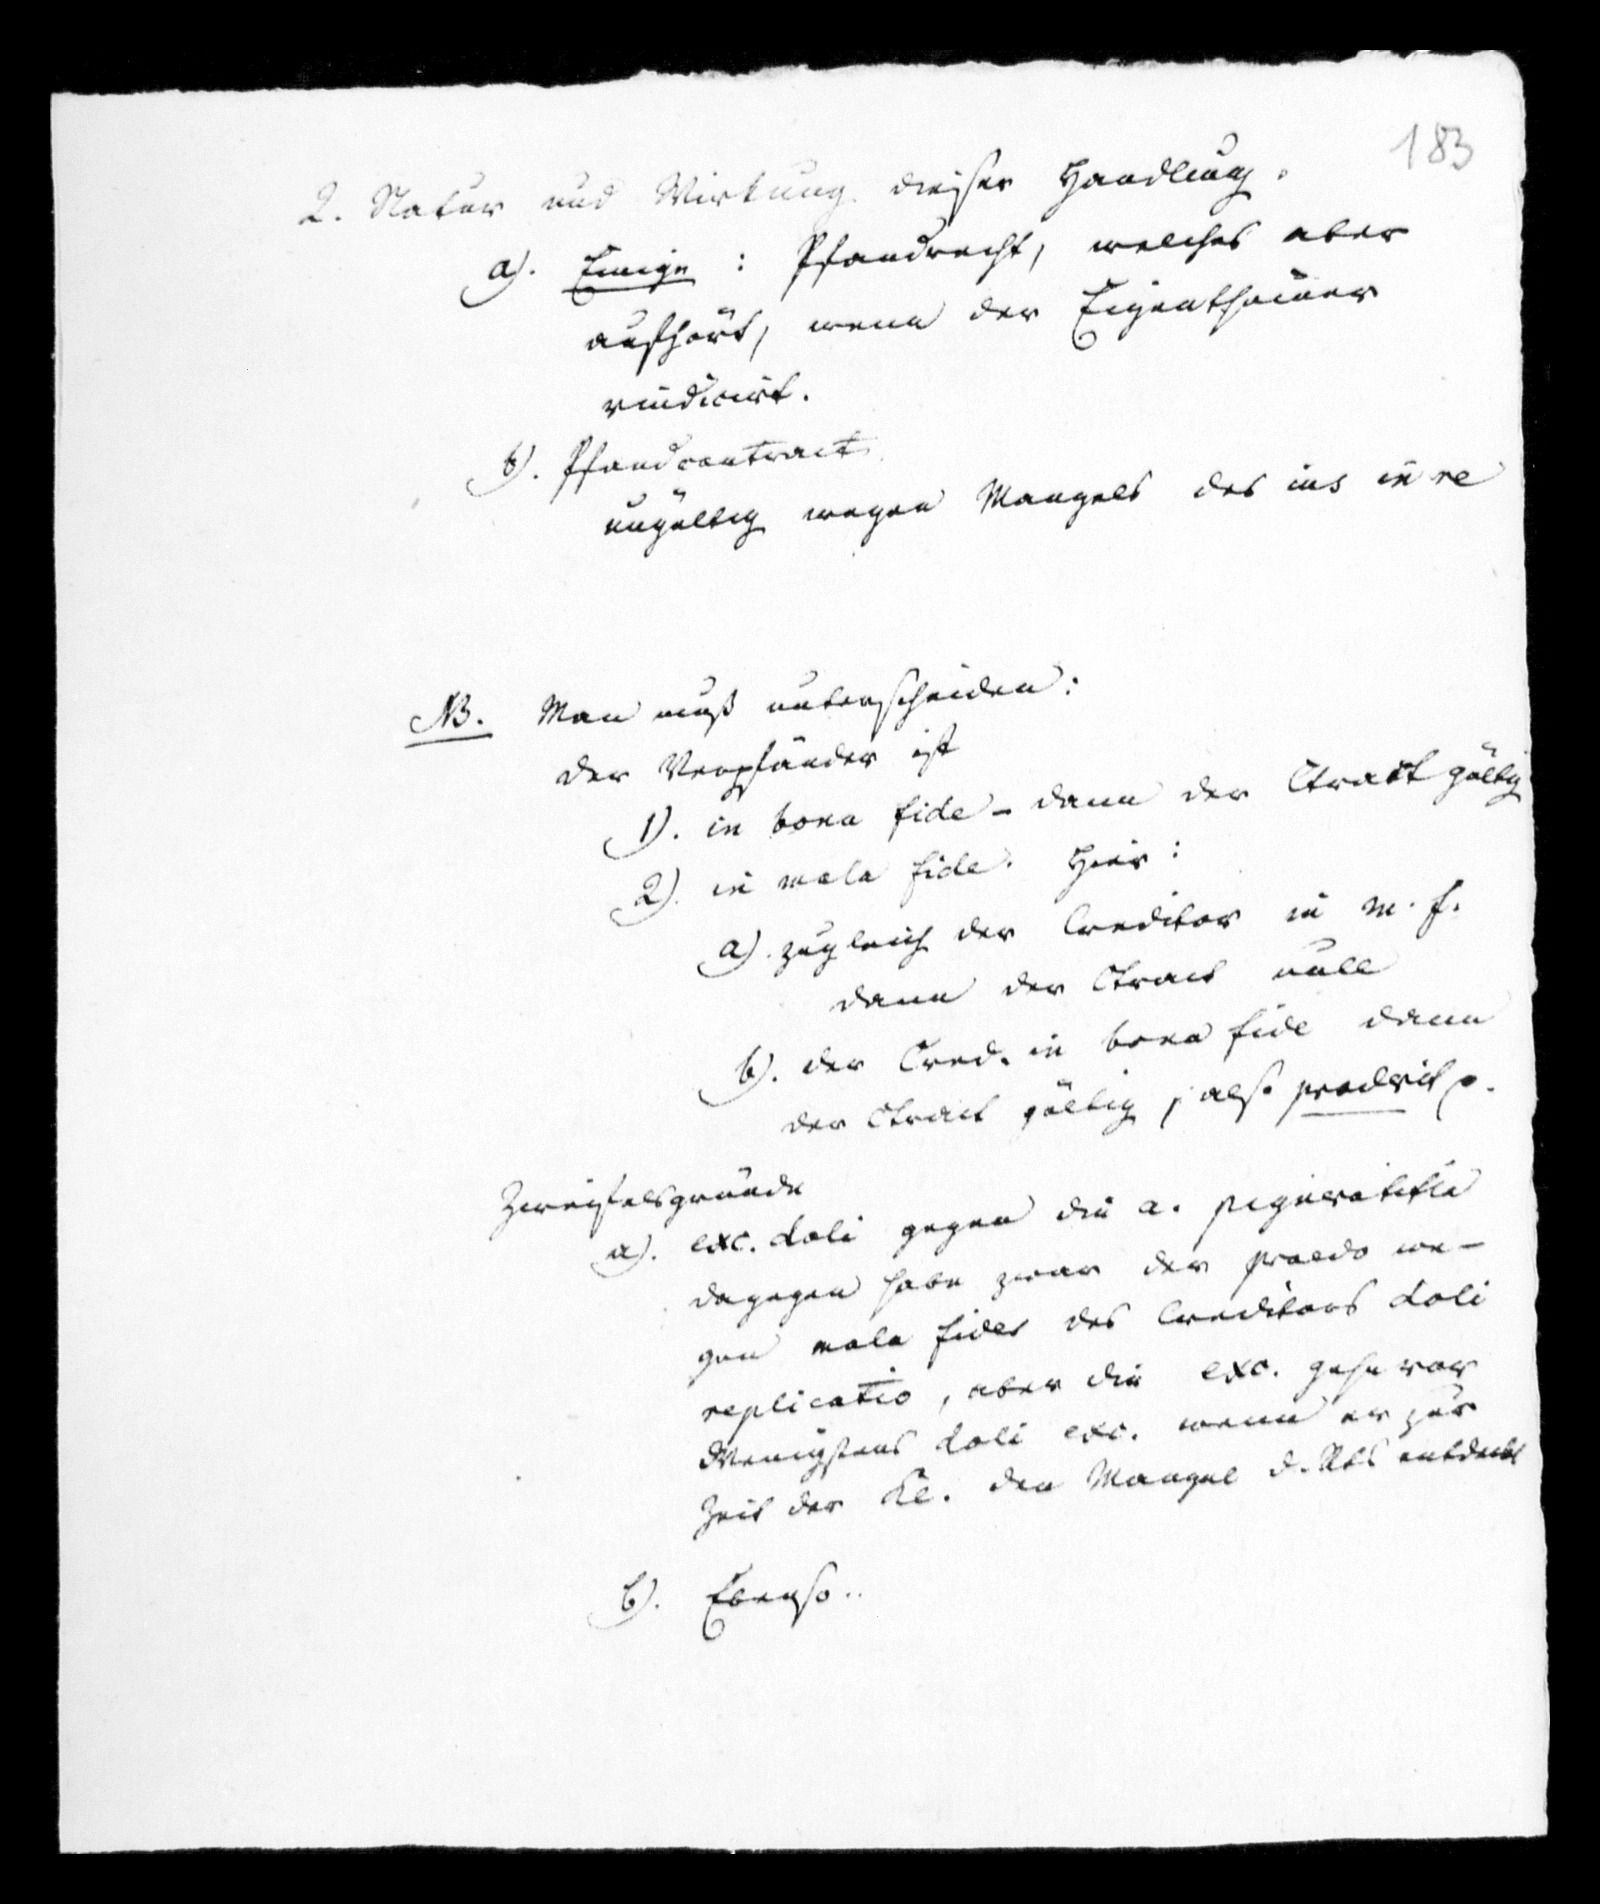 183
2. Natur und Wirkung dieser Handlung.
a). Einige: Pfandrecht, welches aber
aufhört, wenn der Eigenthümer
vindicirt.
b). Pfandcontract
ungültig wegen Mangels des ius in re
NB. Man muß unterscheiden:
der Verpfänder ist
1). in bona fide – dann der Ctract gültig
2). in mala fide. Hier:
a). zugleich der Creditor in m. f.
dann der Ctract null
b). der Cred. in bona fide dann
der Ctract gültig, also
Zweifelsgründe
a). exc. doli gegen die a. pigneratitia
dagegen habe zwar der praedo we-
gen mala fides des Creditors doli
replicatio, aber die exc. gehe vor
Wenigstens doli exc. wenn er zur
Zeit der Kl. den Mangel d. Rts entdeckt
b). Ebenso..